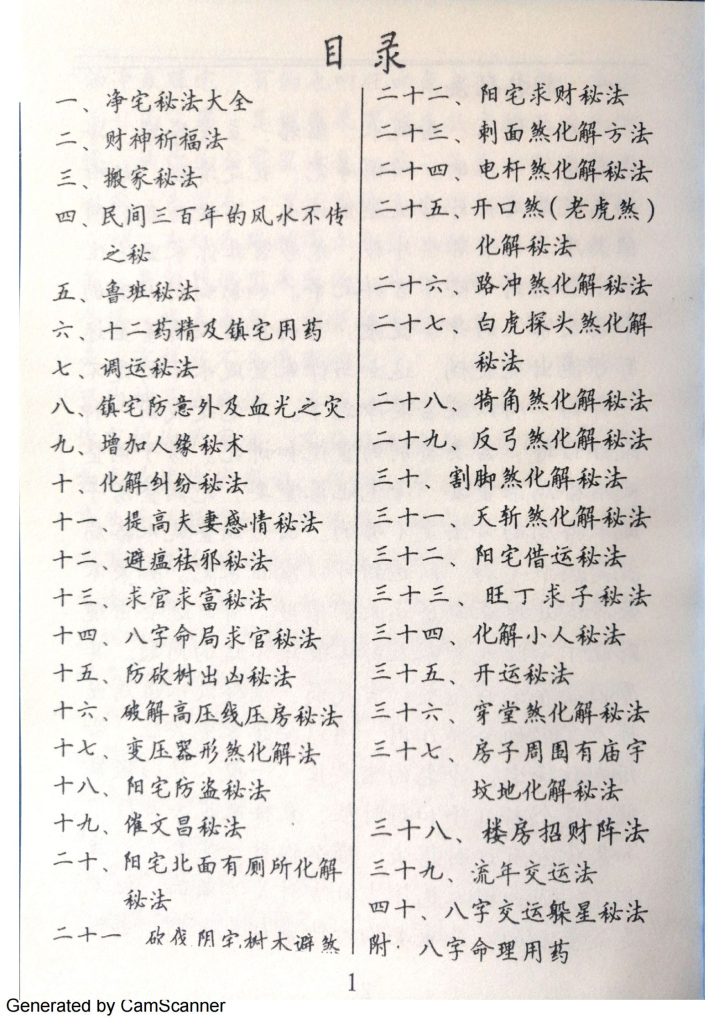 目录
一、净宅秘法大全
二、财神祈福法
三、搬家秘法
四、民间三百年的风水不传
之秘
五、鲁班秘法
六、十二药精及镇宅用药
七、调运秘法
八、镇宅防意外及血光之灾
九、增加人缘秘术
十、化解纠纷秘法
十一、提高夫妻感情秘法
十二、避瘟祛邪秘法
十三、求官求富秘法
十四、八字命局求官秘法
十五、防砍树出凶秘法
十六、破解高压线压房秘法
十七、变压器形煞化解法
十八、阳宅防盗秘法
十九、催文昌秘法
二十、阳宅北面有厕所化解
秘法
二十一 砍伐阴宅树木避煞
二十二、阳宅求财秘法
二十三、刺面煞化解方法
二十四、电杆煞化解秘法
二十五、开口煞(老虎煞)
化解秘法
二十六、路冲煞化解秘法
二十七、白虎探头煞化解
秘法
二十八、掎角煞化解秘法
二十九、反弓煞化解秘法
三十、割脚煞化解秘法
三十一 天斩煞化解秘法
三十二、阳宅借运秘法
三十三、旺丁求子秘法
三十四、化解小人秘法
三十五、开运秘法
三十六、穿堂煞化解秘法
三十七、房子周围有庙宇
坟地化解秘法
三十八、楼房招财阵法
三十九、流年交运法
四十、八字交运躲星秘法
附·八字命理用药
1
Generated by CamScanner